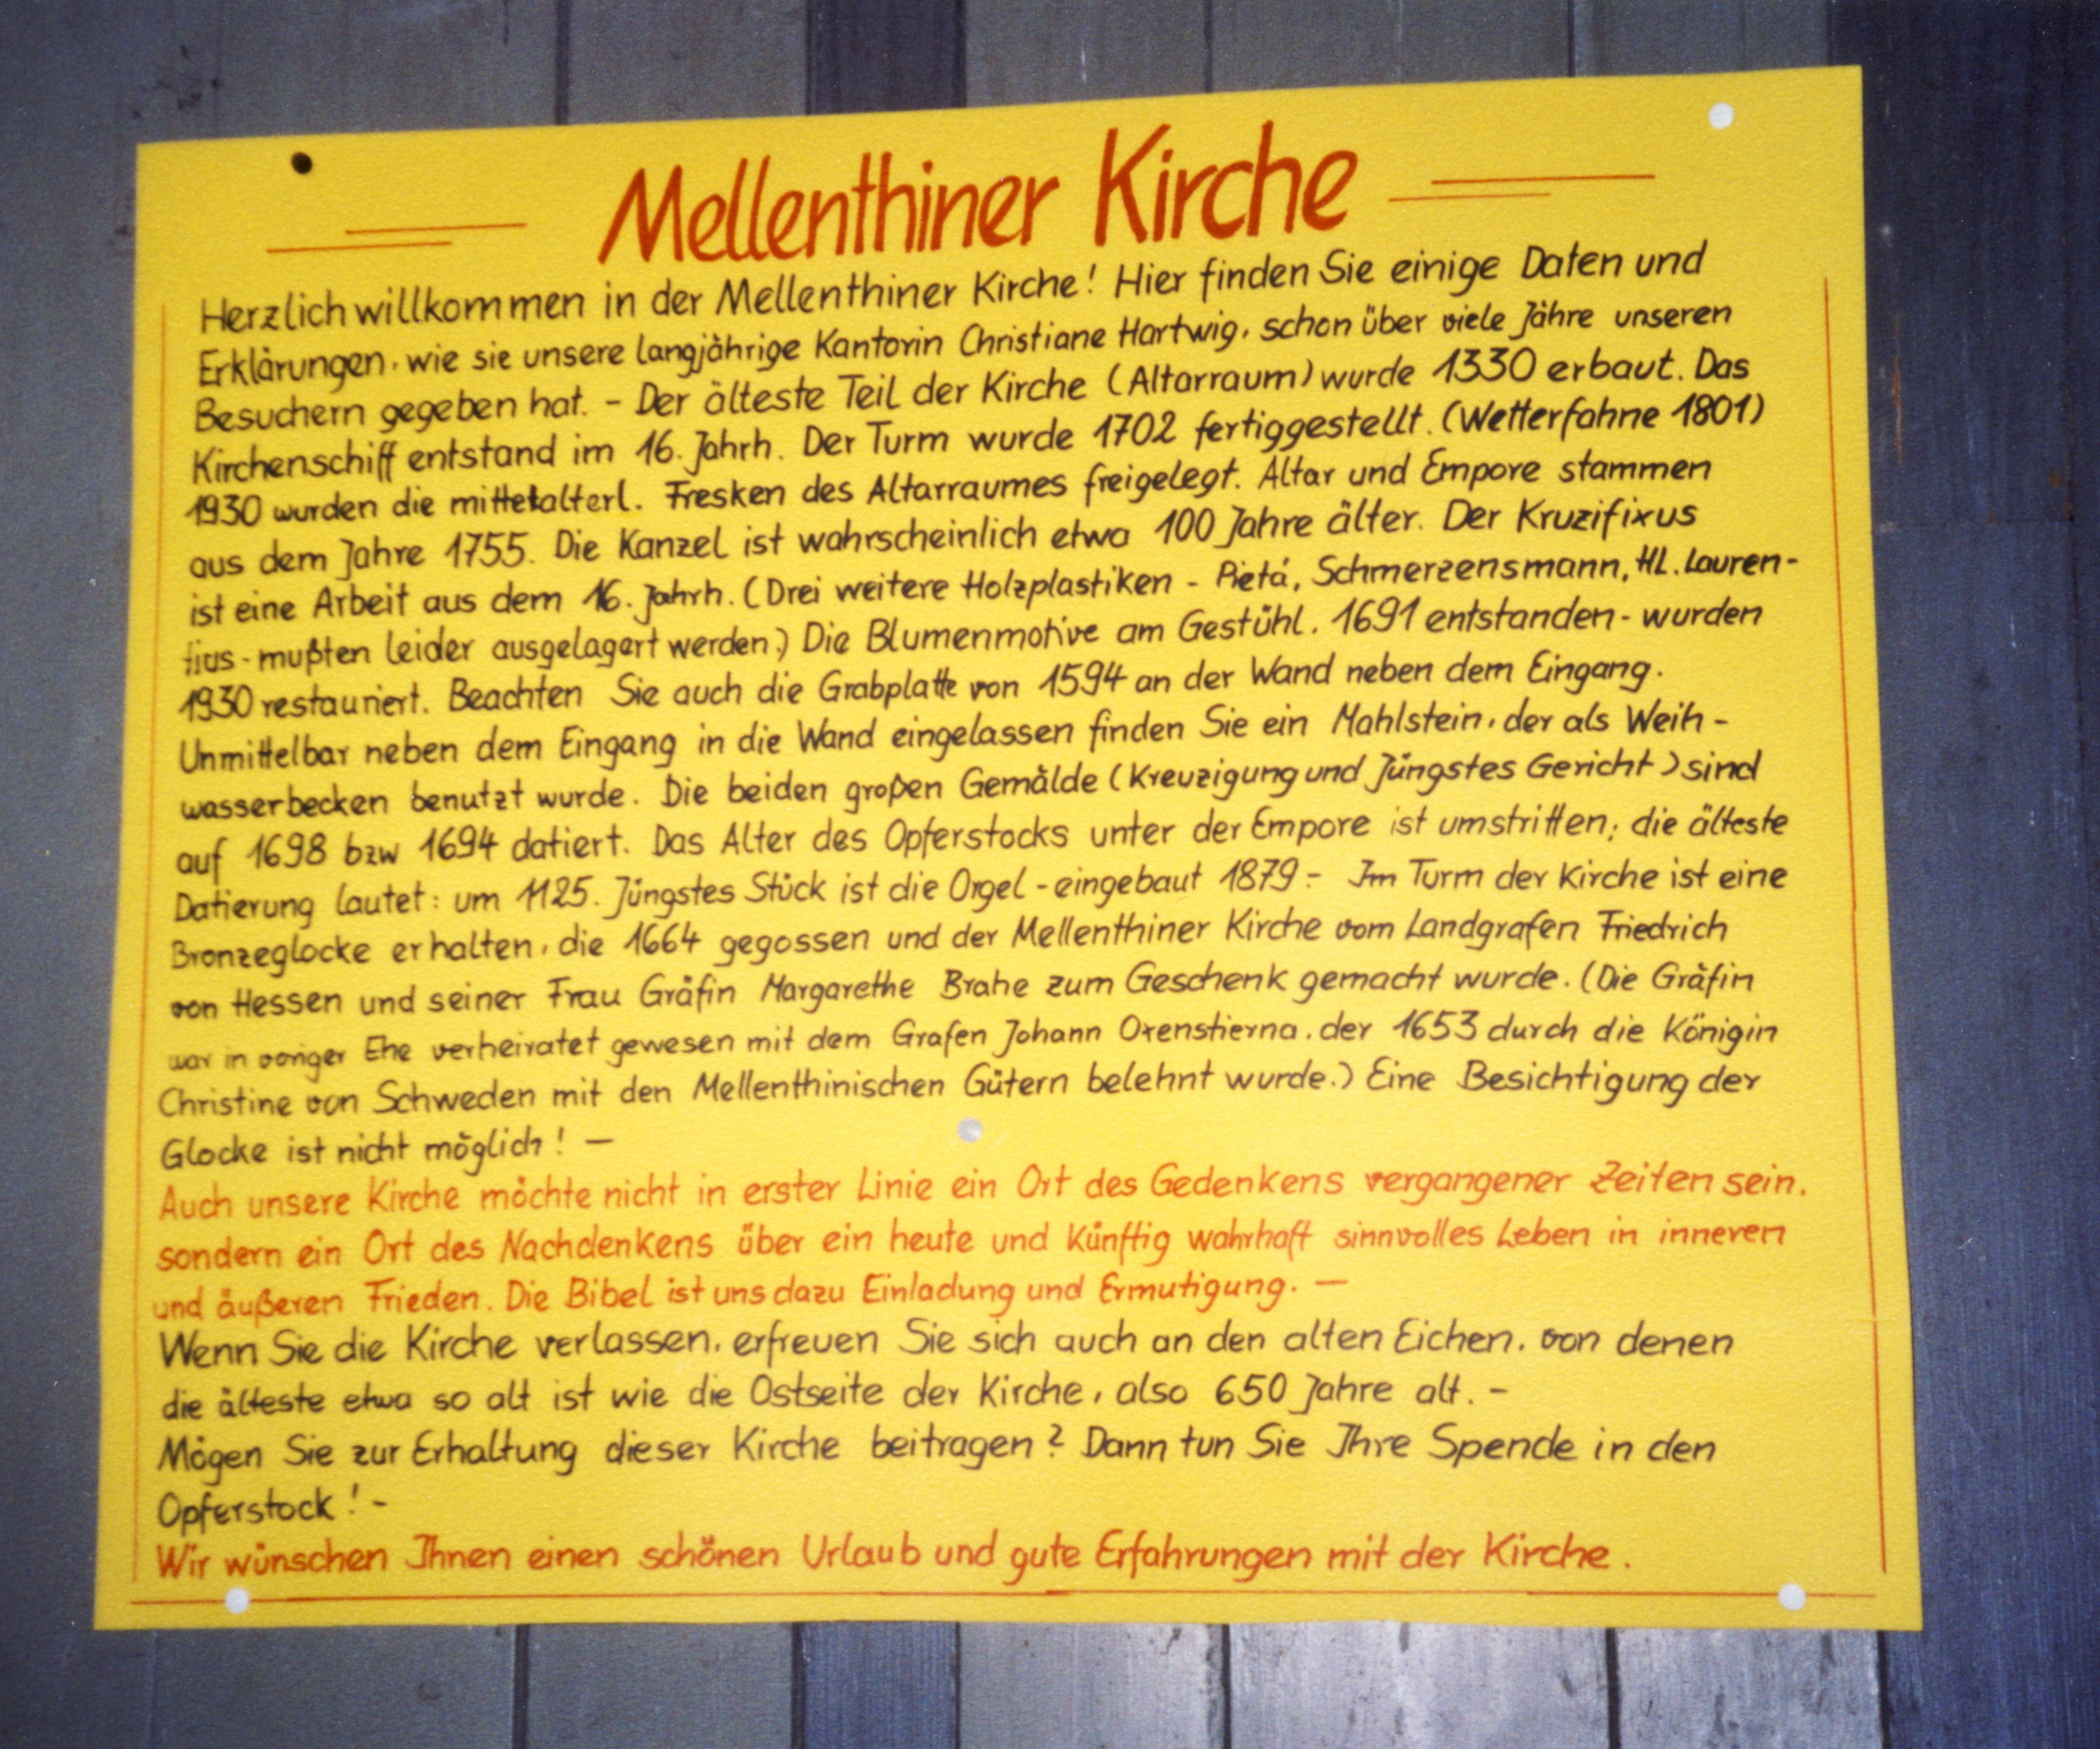 Mellenthiner Kirche
Herzlich willkommen in der Mellenthiner Kirche! Hier finden Sie einige Daten und
Erklärungen, wie sie unsere langjährige Kantorin Christiane Hartwig, schon über viele Jahre unseren
Besuchern gegeben hat. - Der älteste Teil der Kirche (Altarraum) wurde 1330 erbaut. Das
Kirchenschiff entstand im 16. Jahrh. Der Turm wurde 1702 fertiggestellt. (Wetterfahne 1801)
1930 wurden die mittelalterl. Fresken des Altarraumes freigelegt. Altar und Empore stammen
aus dem Jahre 1755. Die Kanzel ist wahrscheinlich etwa 100 Jahre älter. Der Kruzifixus
ist eine Arbeit aus dem 16. Jahrh. (Drei weitere Holzplastiken - Pietá, Schmerzensmann, Hl. Lauren-
tius - mußten leider ausgelagert werden.) Die Blumenmotive am Gestühl, 1691 entstanden - wurden
1930 restauriert. Beachten Sie auch die Grabplatte von 1594 an der Wand neben dem Eingang.
Unmittelbar neben dem Eingang in die Wand eingelassen finden Sie ein Mahlstein, der als Weih-
wasserbecken benutzt wurde. Die beiden großen Gemälde (Kreuzigung und Jüngstes Gericht) sind
auf 1698 bzw 1694 datiert. Das Alter des Opferstocks unter der Empore ist umstritten; die älteste
Datierung lautet: um 1125. Jüngstes Stück ist die Orgel - eingebaut 1879 - Im Turm der Kirche ist eine
Bronzeglocke erhalten, die 1664 gegossen und der Mellenthiner Kirche vom Landgrafen Friedrich
von Hessen und seiner Frau Gräfin Margarethe Brahe zum Geschenk gemacht wurde. (Die Gräfin
war in voriger Ehe verheiratet gewesen mit dem Grafen Johann Oxenstierna, der 1653 durch die Königin
Christine von Schweden mit den Mellenthinischen Gütern belehnt wurde.) Eine Besichtigung der
Glocke ist nicht möglich! —
Auch unsere Kirche möchte nicht in erster Linie ein Ort des Gedenkens vergangener Zeiten sein,
sondern ein Ort des Nachdenkens über ein heute und künftig wahrhaft sinnvolles Leben in inneren
und äußeren Frieden. Die Bibel ist uns dazu Einladung und Ermutigung. —
Wenn Sie die Kirche verlassen, erfreuen Sie sich auch an den alten Eichen, von denen
die älteste etwa so alt ist wie die Ostseite der Kirche, also 650 Jahre alt. -
Mögen Sie zur Erhaltung dieser Kirche beitragen? Dann tun Sie Ihre Spende in den
Opferstock! -
Wir wünschen Ihnen einen schönen Urlaub und gute Erfahrungen mit der Kirche.